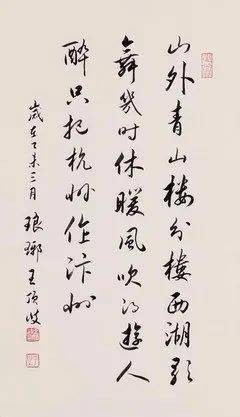 山外青山楼外楼西湖歌
舞幾时休暖風吹得遊人
醉只把杭州作汴州
歲在丁未三月 琅琊 王